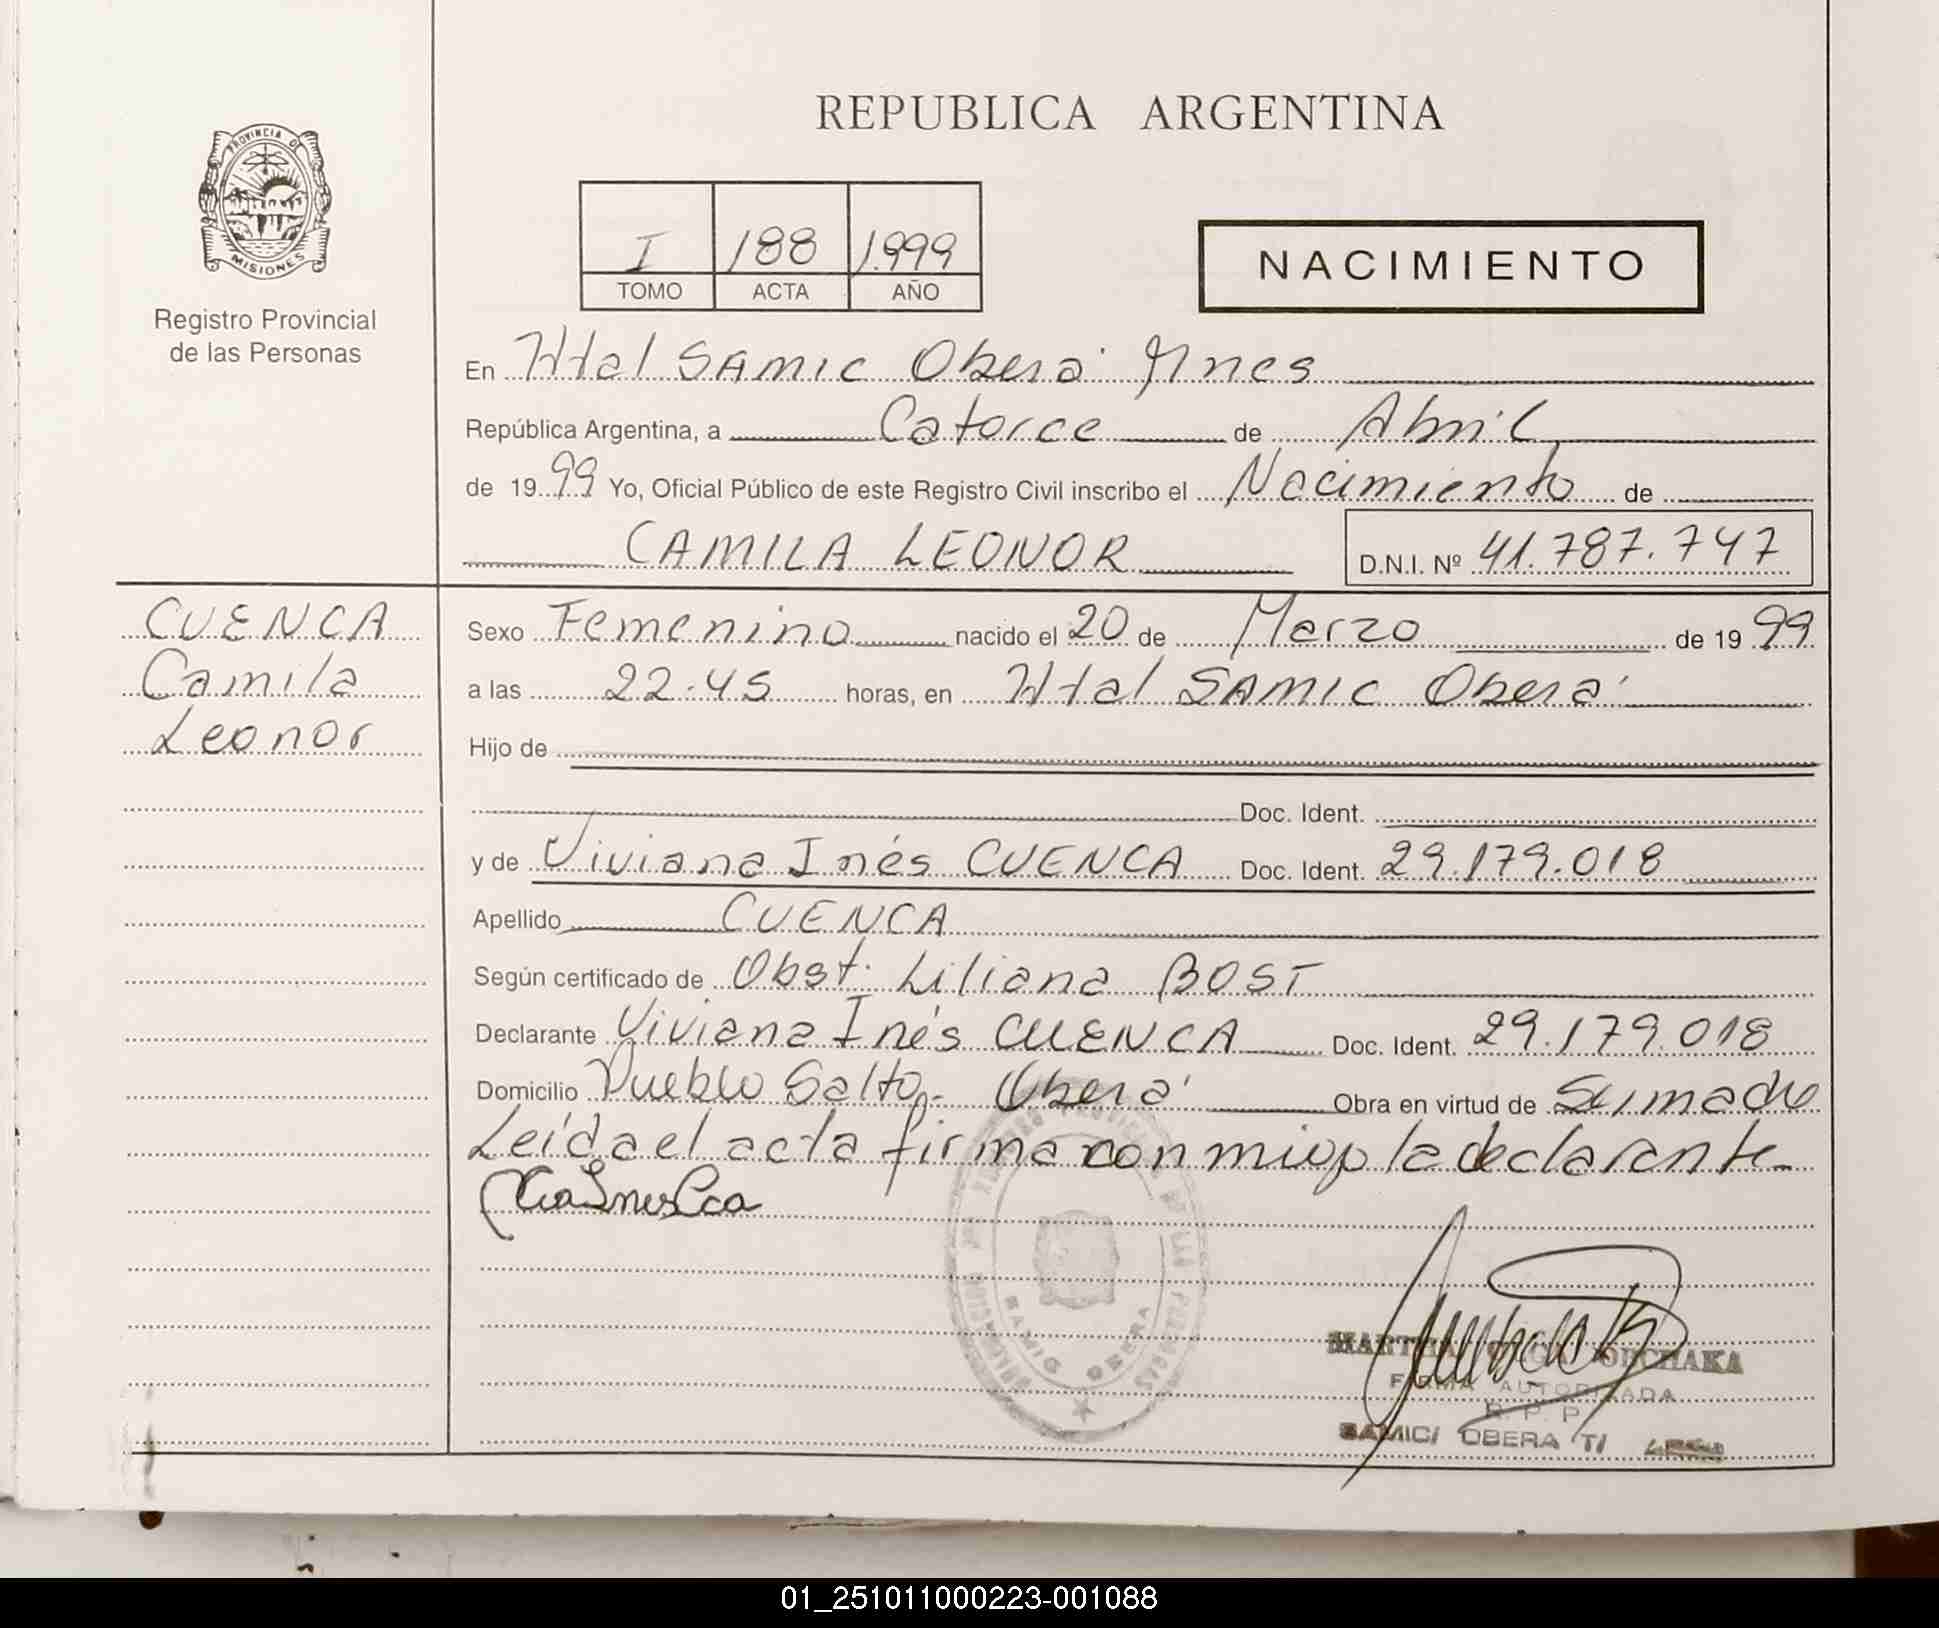 REPUBLICA ARGENTINA
PROVINCIA DE
MISIONES
Registro Provincial
de las Personas
I 188 1.999
TOMO ACTA AÑO
NACIMIENTO
En Htal SAMIC Oberá Mnes
República Argentina, a Catorce de Abril
de 19 99 Yo, Oficial Público de este Registro Civil inscribo el Nacimiento de
CAMILA LEONOR D.N.I. Nº 41.787.747
CUENCA
Camila
Leonor
Sexo Femenino nacido el 20 de Marzo de 19 99
a las 22.45 horas, en Htal SAMIC Oberá
Hijo de
Doc. Ident.
y de Viviana Inés CUENCA Doc. Ident. 29.179.018
Apellido CUENCA
Según certificado de Obst. Liliana BOST
Declarante Viviana Inés CUENCA Doc. Ident. 29.179.018
Domicilio Pueblo Salto - Oberá Obra en virtud de Su madre
Leída el acta firma conmigo la declarante
SAMIC OBERA
MARTHA OLGA
FIRMA AUTORIZADA
R. P. P.
SAMIC/ OBERA
01_251011000223-001088